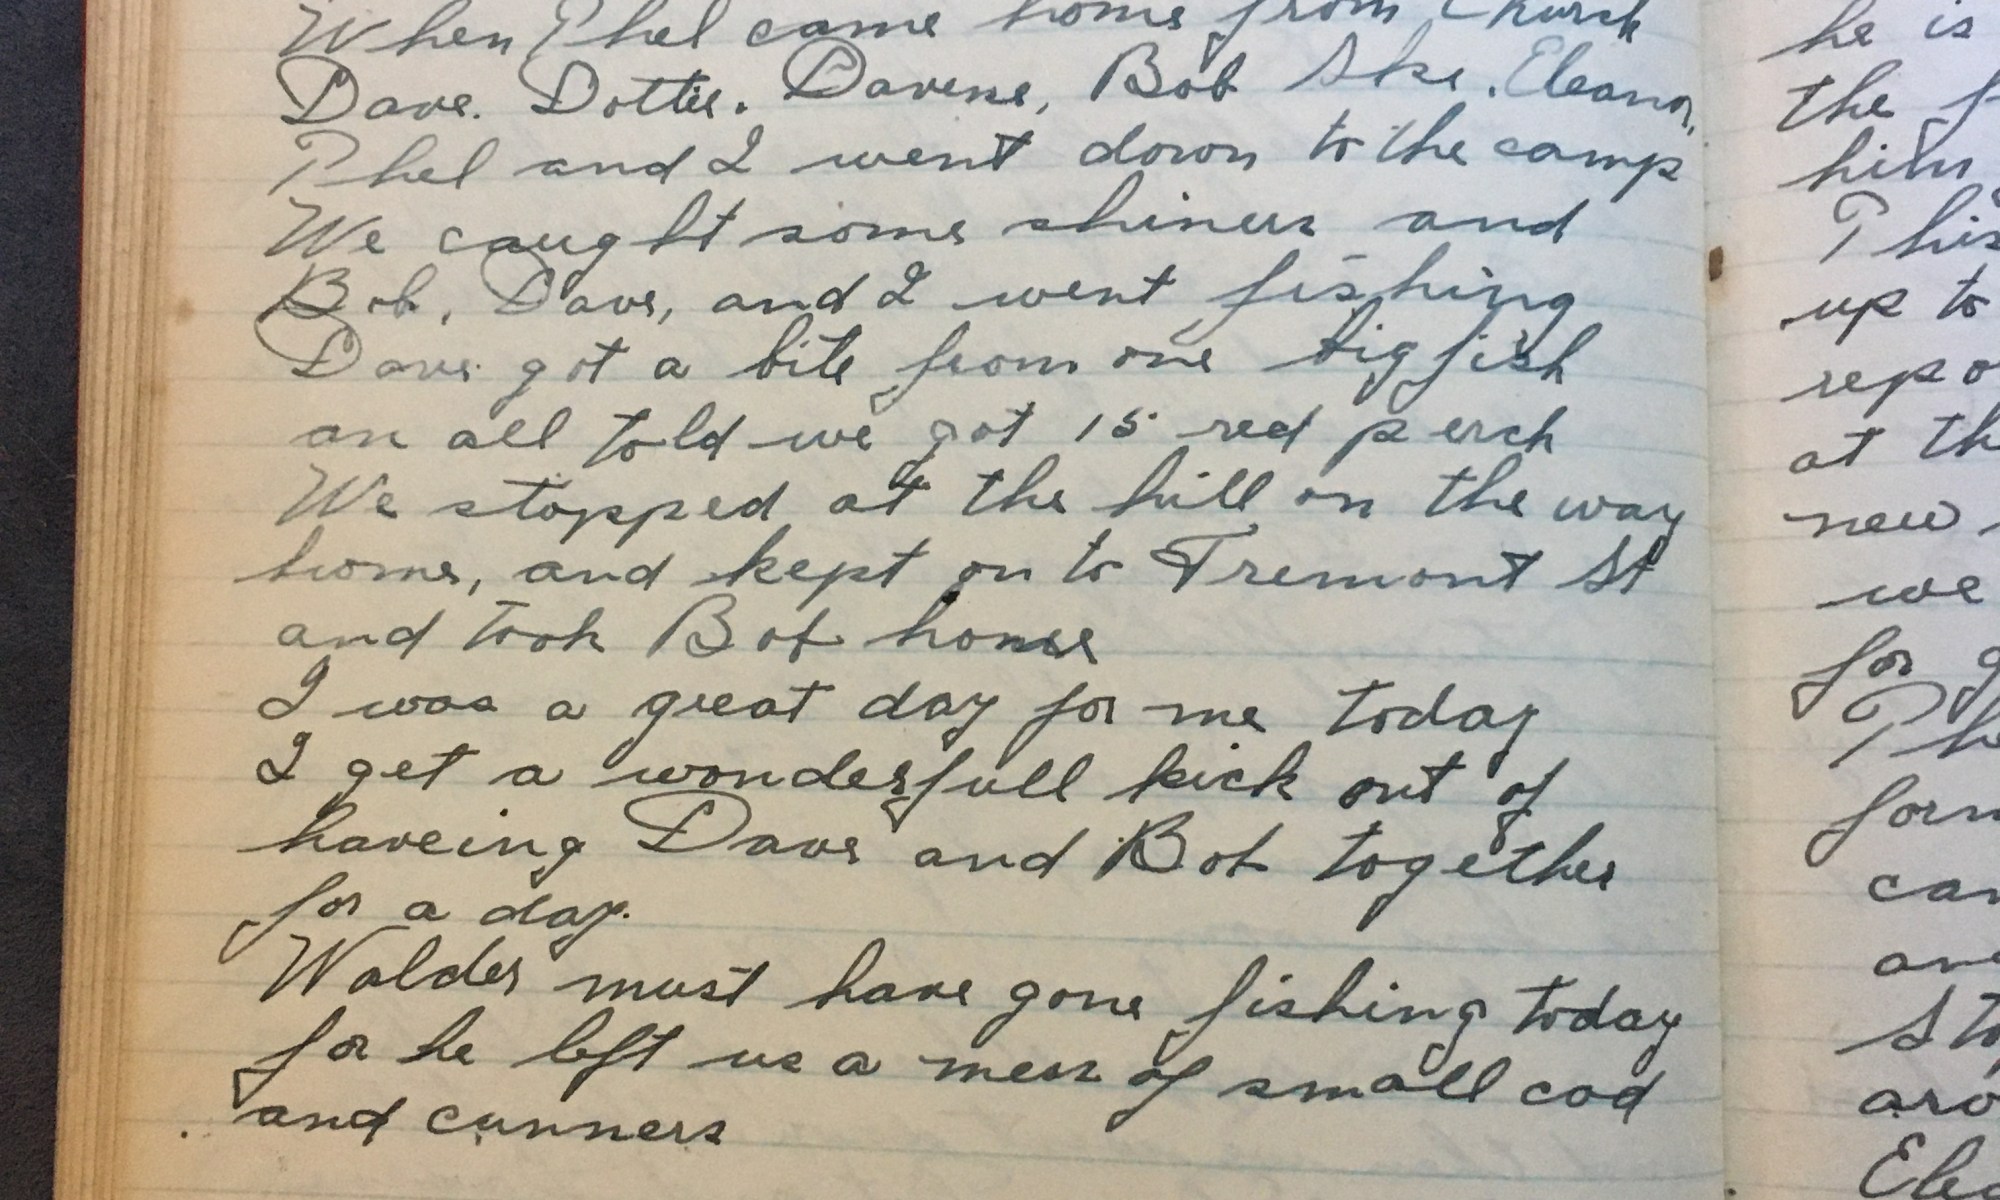 When Phel came home from Church
Dave. Dottie. Davene, Bob Ske. Eleanor,
Phel and I went down to the camp
We caught some shiners and
Bob, Dave, and I went fishing
Dave got a bite from one big fish
an all told we got 15 red perch
We stopped at the hill on the way
home, and kept on to Tremont St
and took Bob home
I was a great day for me today
I get a wonderfull kick out of
haveing Dave and Bob together
for a day.
Walder must have gone fishing today
for he left us a mess of small cod
and cunners
he is
the
him
This
up to
repo
at th
new
we
for g
Phe
form
can
ave
Sto
aro
Elea